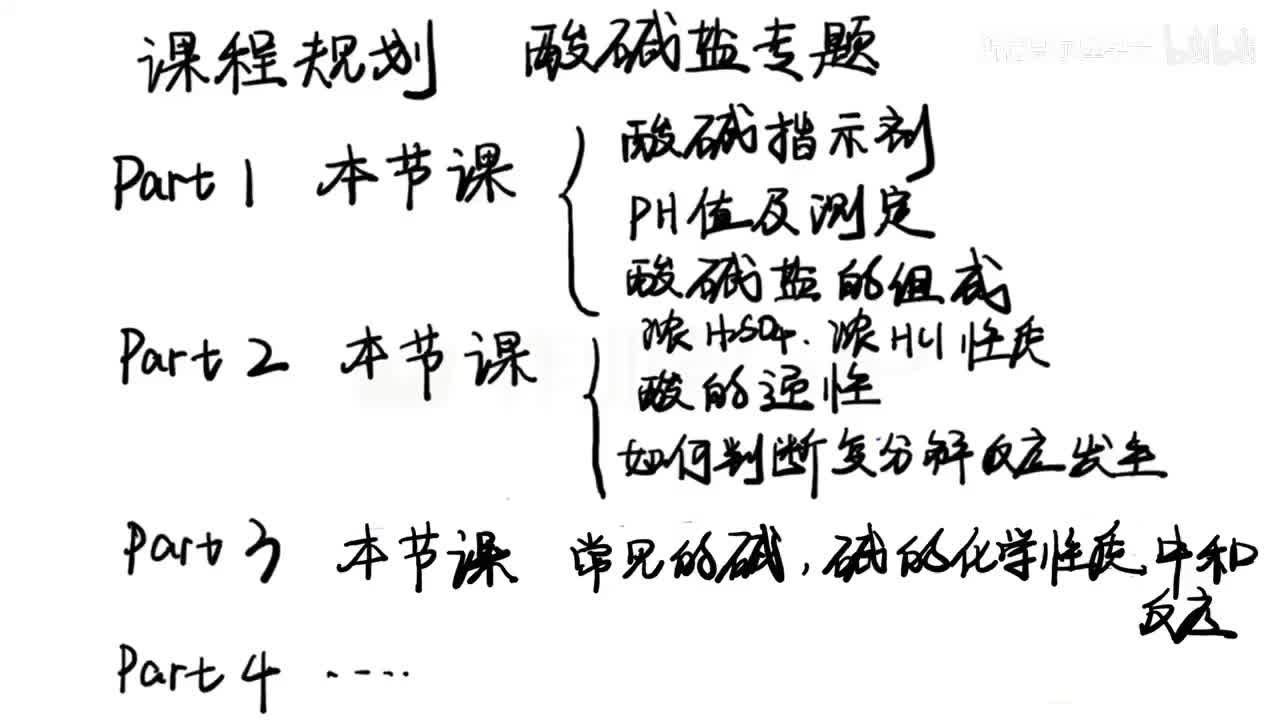 课程规划 酸碱盐专题
bilibili
Part 1 本节课
酸碱指示剂
PH值及测定
酸碱盐的组成
Part 2 本节课
浓H2SO4. 浓HCl 性质
酸的通性
如何判断复分解反应发生
Part 3 本节课 常见的碱, 碱的化学性质 中和
反应
Part 4 ....